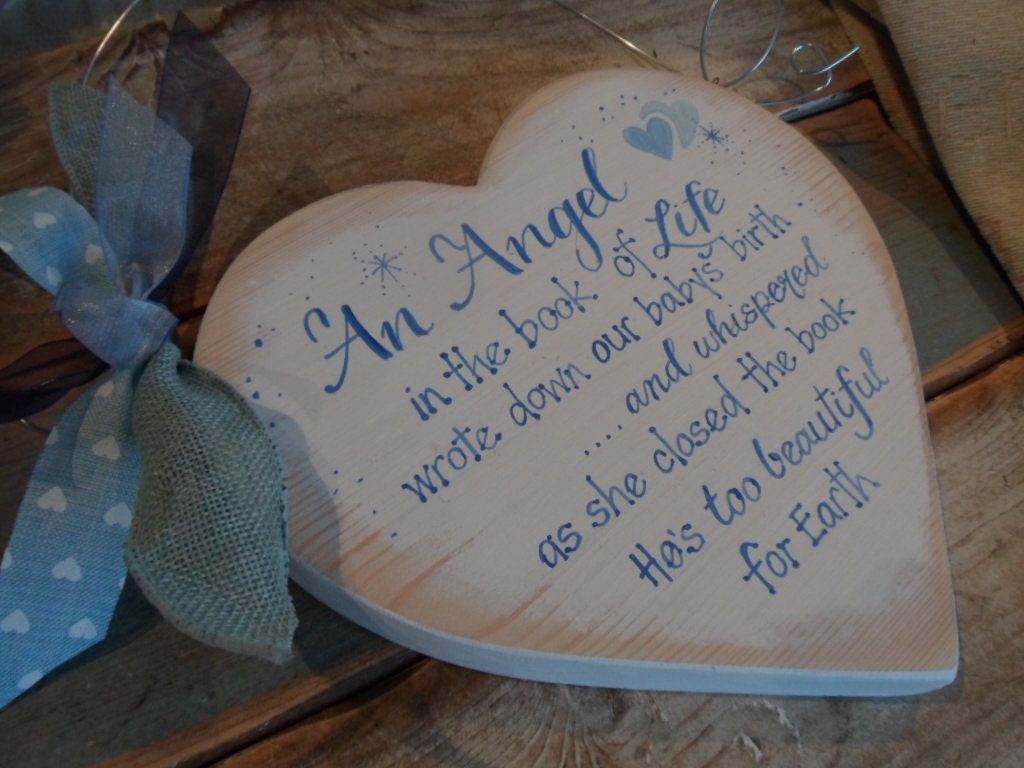 An Angel
in the book of Life
wrote down our babys' birth
.... and whispered
as she closed the book
He's too beautiful
for Earth